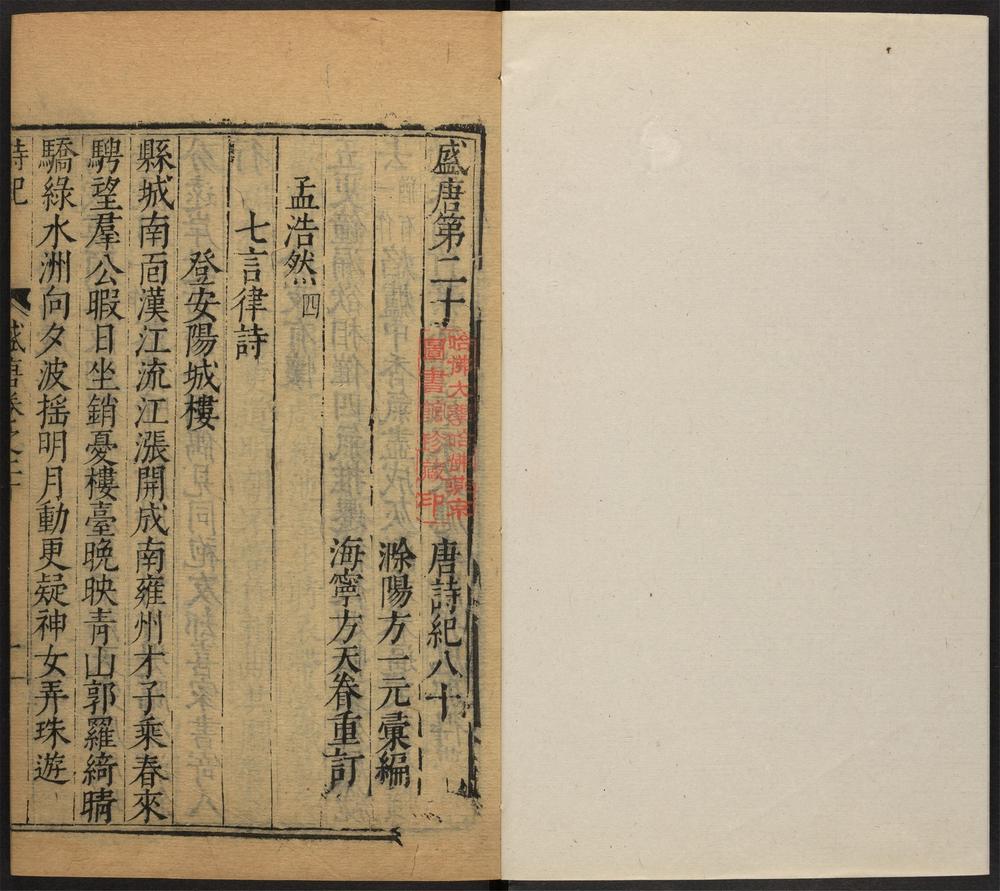 盛唐第二十
唐詩紀八十
哈佛大學哈佛燕京
圖書館珍藏印
滁陽方一元彙編
海寧方天眷重訂
孟浩然四
七言律詩
登安陽城樓
縣城南面漢江流江漲開成南雍州才子乘春來
騁望羣公暇日坐銷憂樓臺晚映青山郭羅綺晴
驕綠水洲向夕波摇明月動更疑神女弄珠遊
詩紀
盛唐卷之二十